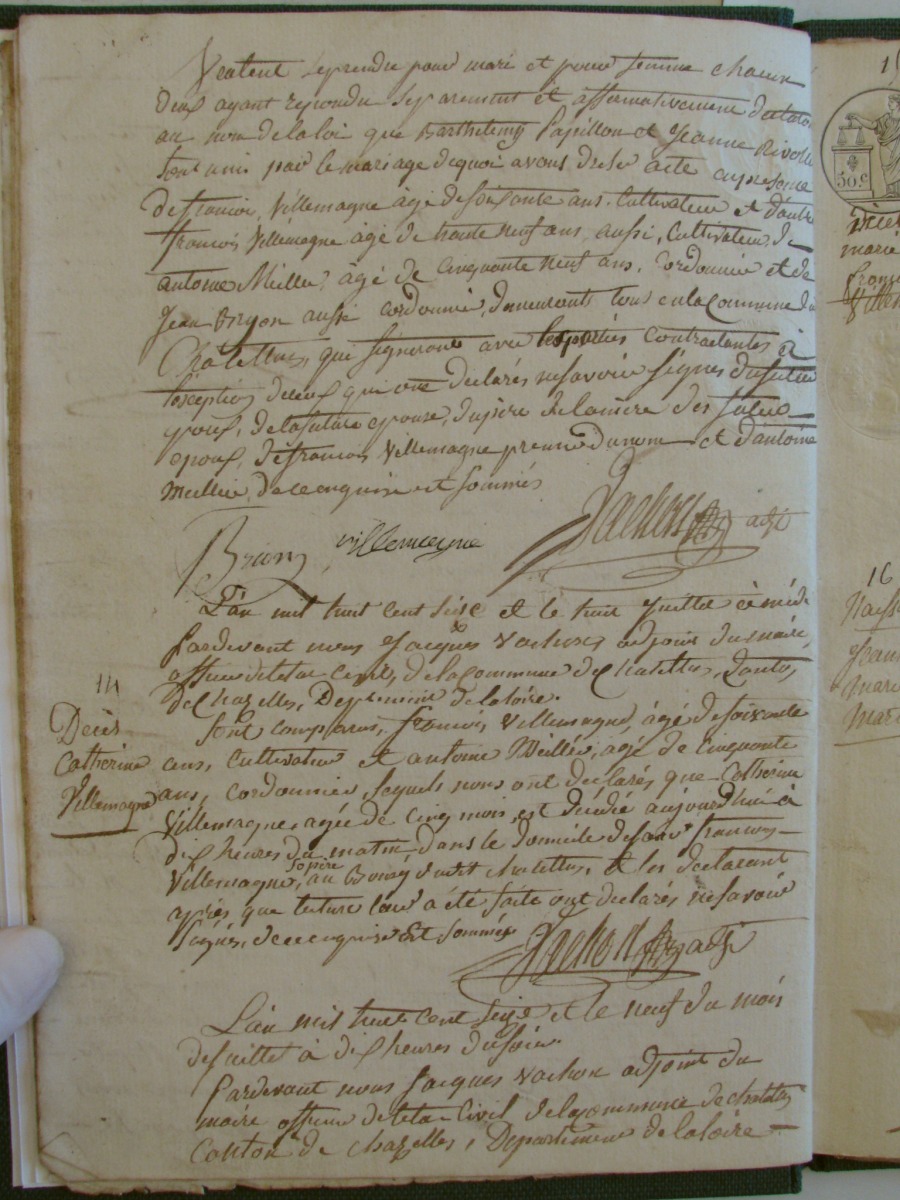 Veulent se prendre pour mari et pour femme chacun
deux ayant repondu separement et affirmativement declaron
au nom de la loi que Barthelemy Papillon et Jeanne Rivolle
sont unis par le mariage de quoi avons dressé acte en presence
de francois Villemagne agé de soixante ans cultivateur et d'autre
francois Villemagne agé de trante neuf ans, aussi, Cultivateur, de
antoine Meillé agé de cinquante neuf ans, Cordonnier et de
Jean Bryon aussi cordonnié, demeurants tous en la Commune de
Châtellus, qui signeront avec les parties contractantes à
l'exception de ceux qui ont declarés ne savoir signés du futur
époux, de la future epouse, du pere de la mere des futur
epoux, de francois Villemagne premier du nom et d'antoine
Meillié, de ce enquis et sommés
Brion villemagne Vachon adjt
L'an mil huit cent seise et le huit Juillet à midi
Pardevant nous Jacques Vachon adjoint du maire,
officier de létat civil, de la commune de Chatellus, Canton
de Chazelles, Departement de la loire.
Sont comparus, francois, Villemagne, agé de soixante
ans, cultivateur et antoine Meillée, agé de cinquante
ans, cordonnier, lesquels nous ont declarés que Catherine
Villemagne, agée de cinq mois, est décédé aujourd'hui à
dix heures du matin, dans le domicile de francois
Villemagne, son pere au Bourg dudit chatellus, et les declarant
après que lecture leur a été faite ont declarés ne savoir
signés, de ce enquis et sommés
Vachon adjt
L'an mil huit cent seize et le neuf du mois
de juillet à dix heures du soir
Pardevant nous Jacques Vachon adjoint du
maire officier de léta Civil de la commune de chatellus
Canton de chazelles, Departement de la loire
114
Décès
Catherine
Villemagne
50 c
Décès
marie
franc
Ville
16
Naiss
Jeann
Marie
Mari